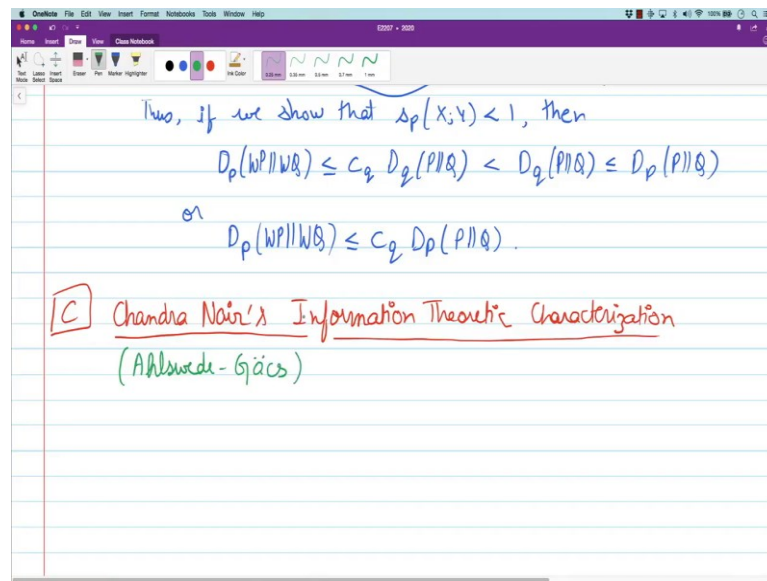 OneNote File Edit View Insert Format Notebooks Tools Window Help
100%
E2207 • 2020
Home Insert Draw View Class Notebook
Text Mode Lasso Select Insert Space Eraser Pen Marker Highlighter Ink Color 0.25 mm 0.35 mm 0.5 mm 0.7 mm 1 mm
Thus, if we show that s_p(X;Y) < 1, then
D_p(WP||WQ) ≤ C_q D_q(P||Q) < D_q(P||Q) ≤ D_p(P||Q)
or
D_p(WP||WQ) ≤ C_q D_p(P||Q).
C Chandra Nair's Information Theoretic Characterization
(Ahlswede-Gäcs)